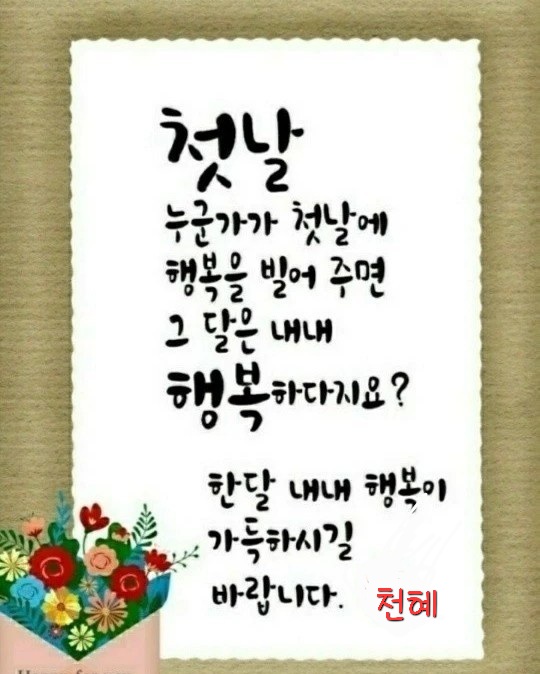 첫날
누군가가 첫날에
행복을 빌어 주면
그 달은 내내
행복하다지요?
한달 내내 행복이
가득하시길
바랍니다. 천혜